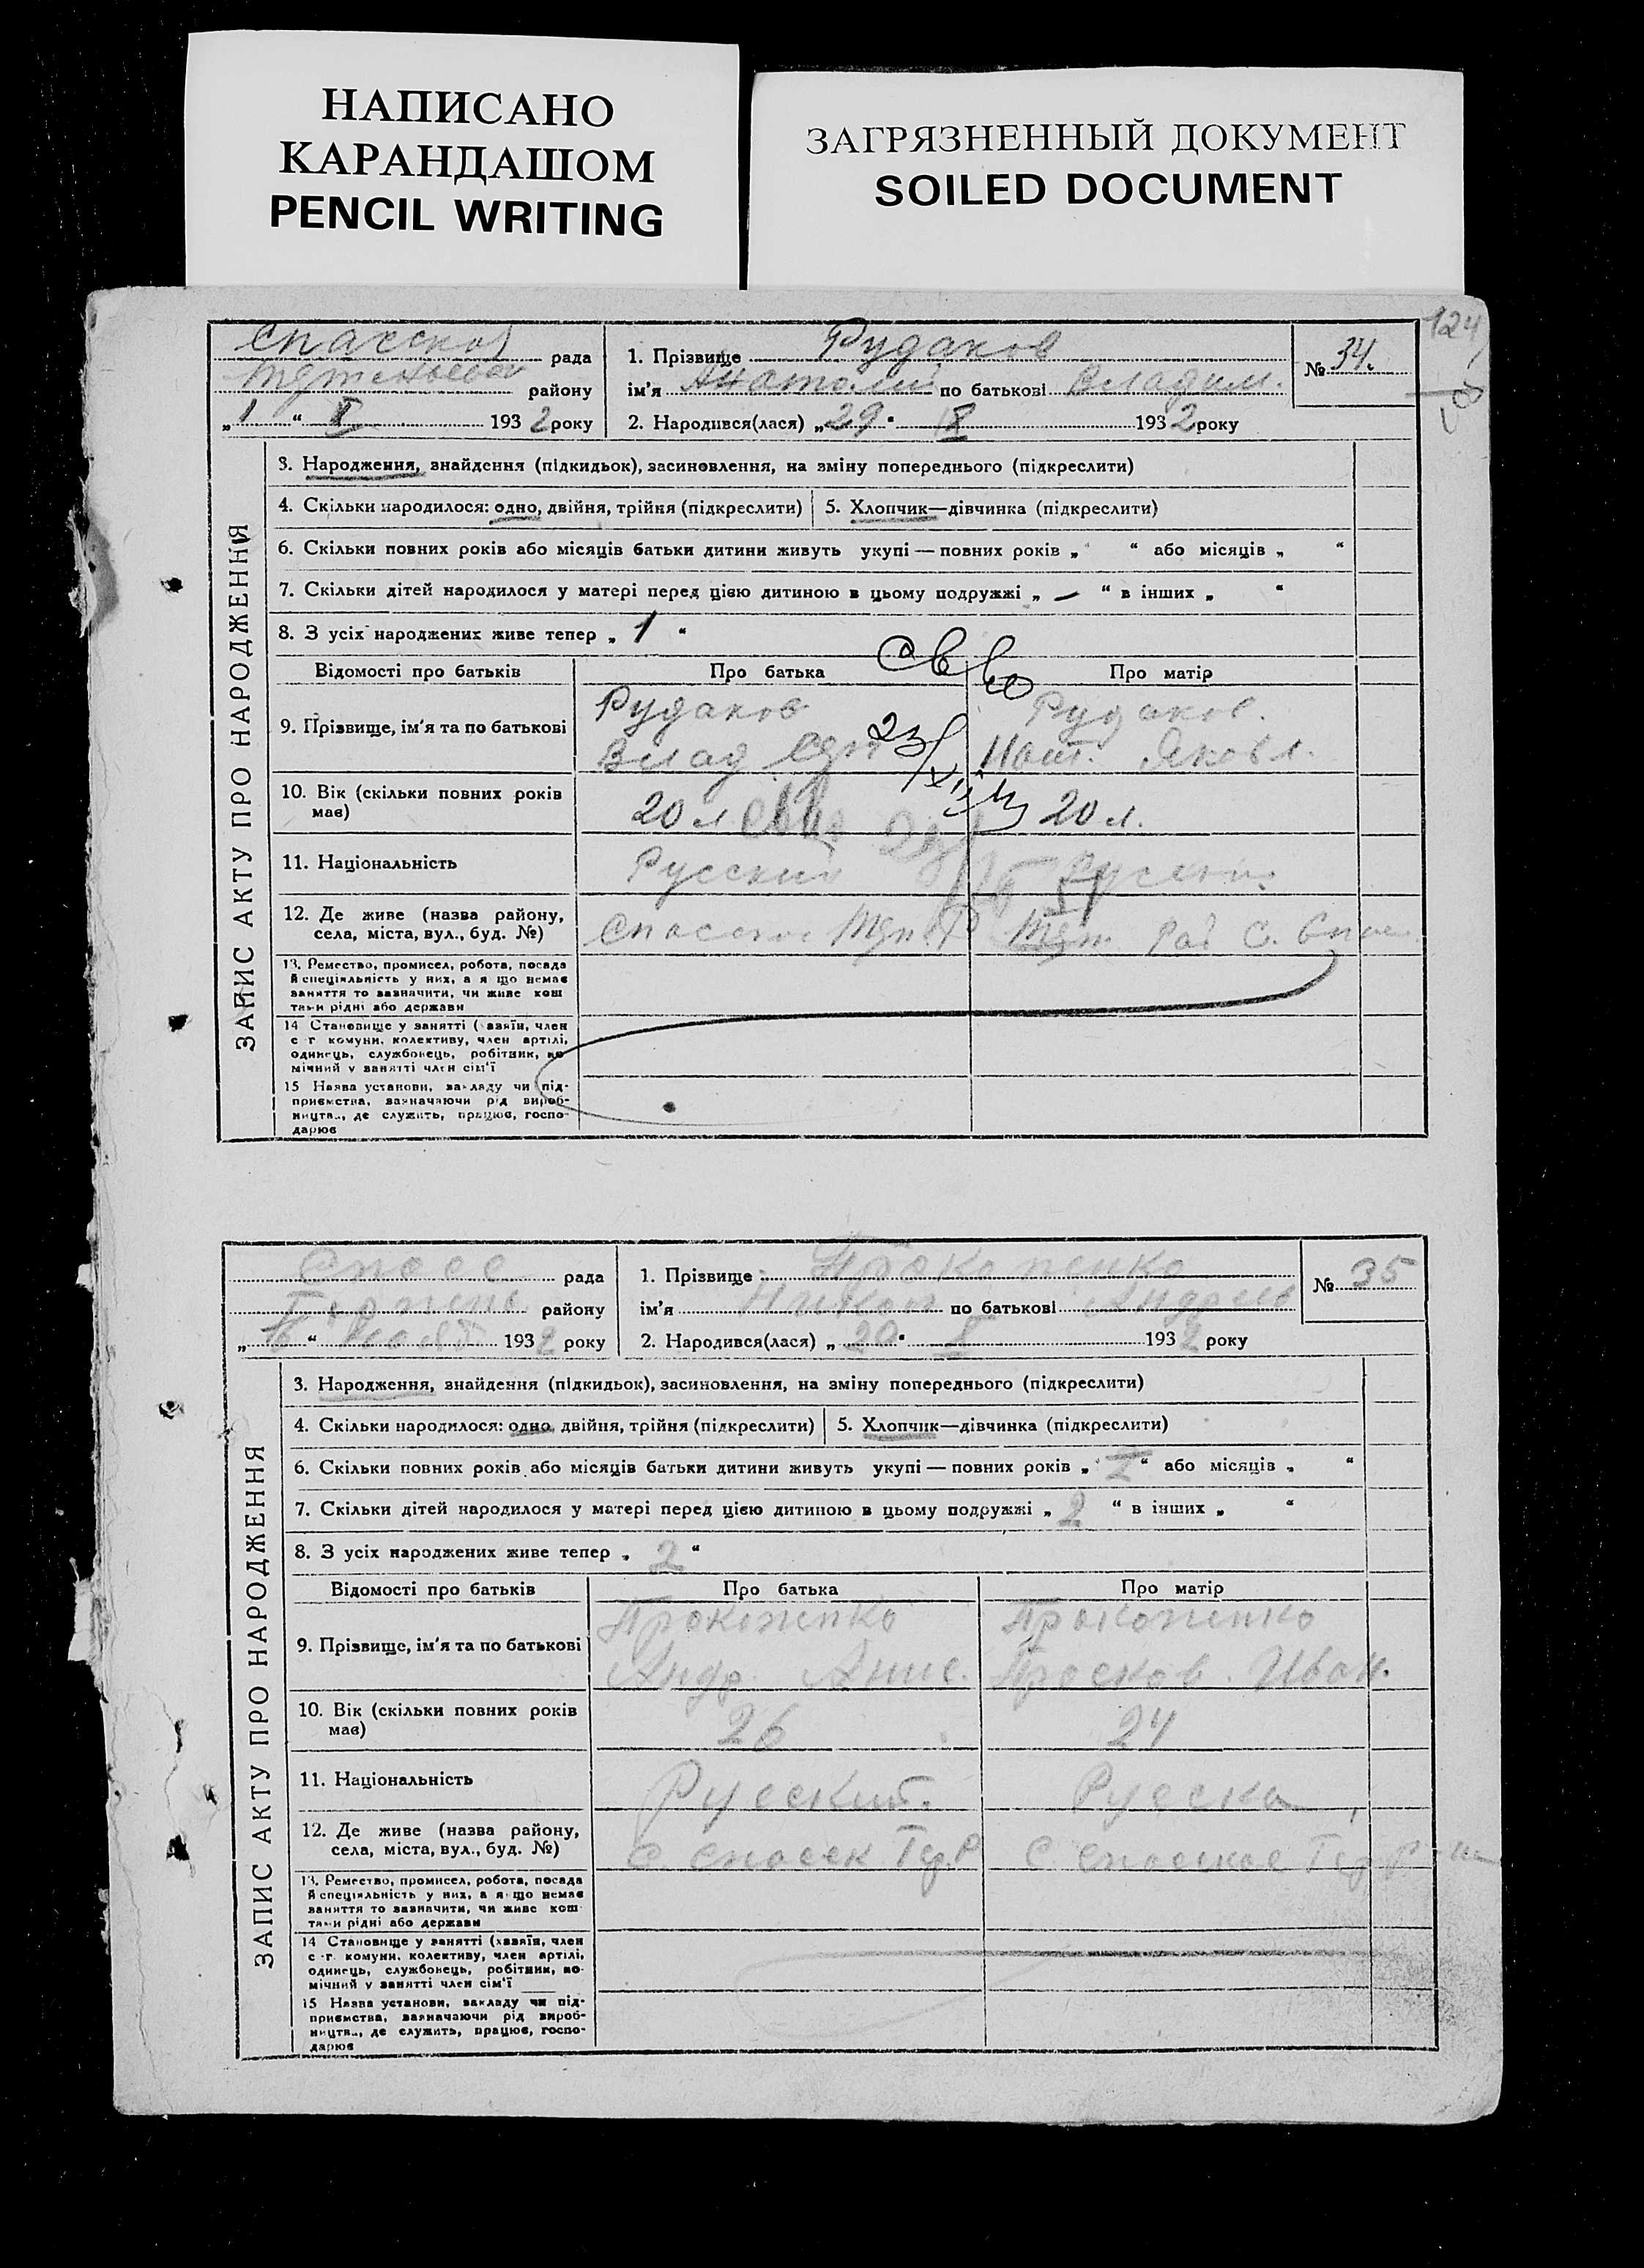 НАПИСАНО
КАРАНДАШОМ
PENCIL WRITING
ЗАГРЯЗНЕННЫЙ ДОКУМЕНТ
SOILED DOCUMENT
124
Спасской рада
району
„1“ 1932 року
1. Прізвище Рудаков
ім'я Анатолий по батькові Владим.
2. Народився(лася) „29“ 1932 року
№ 34.
ЗАПИС АКТУ ПРО НАРОДЖЕННЯ
3. Народження, знайдення (підкидьок), засиновлення, на зміну попереднього (підкреслити)
4. Скільки народилося: одно, двійня, трійня (підкреслити) 5. Хлопчик—дівчинка (підкреслити)
6. Скільки повних років або місяців батьки дитини живуть укупі — повних років „ “ або місяців „ “
7. Скільки дітей народилося у матері перед цією дитиною в цьому подружжі „ — “ в інших „ “
8. З усіх народжених живе тепер „ 1 “
Відомості про батьків Про батька Про матір
9. Прізвище, ім'я та по батькові
Рудаков Рудаков.
Влад Яковл.
23/XII
10. Вік (скільки повних років
має)
20 л 20 л.
11. Національність Русский
12. Де живе (назва району,
села, міста, вул., буд. №)
Спасское
13. Ремество, промисел, робота, посада
й спеціяльність у них, а якщо немає
заняття то зазначити, чи живе кош
тами рідні або держави
14 Становище у занятті (хазяїн, член
с-г комуни, колективу, член артілі,
одинець, службонець, робітник, по
мічний у занятті член сім'ї
15 Назва установи, закладу чи під-
приємства, зазначаючи рід вироб-
ництв., де служить, працює, госпо-
дарює
Спасс рада
району
1932 року
1. Прізвище Прокопенко
ім'я по батькові Андреев
2. Народився(лася) „20“ 1932 року
№ 35
ЗАПИС АКТУ ПРО НАРОДЖЕННЯ
3. Народження, знайдення (підкидьок), засиновлення, на зміну попереднього (підкреслити)
4. Скільки народилося: одно, двійня, трійня (підкреслити) 5. Хлопчик—дівчинка (підкреслити)
6. Скільки повних років або місяців батьки дитини живуть укупі — повних років „ “ або місяців „ “
7. Скільки дітей народилося у матері перед цією дитиною в цьому подружжі „ 2 “ в інших „ “
8. З усіх народжених живе тепер „ 2 “
Відомості про батьків Про батька Про матір
9. Прізвище, ім'я та по батькові
Прокопенко Прокопенко
Андр. Анис. Просков. Иван.
10. Вік (скільки повних років
має)
26 24
11. Національність Русский. Русска
12. Де живе (назва району,
села, міста, вул., буд. №)
С. Спасск С. Спасское
13. Ремество, промисел, робота, посада
й спеціяльність у них, а якщо немає
заняття то зазначити, чи живе кош
тами рідні або держави
14 Становище у занятті (хазяїн, член
с-г. комуни, колективу, член артілі,
одинець, службонець, робітник, по-
мічний у занятті член сім'ї
15 Назва установи, закладу чи під-
приємства, зазначаючи рід вироб-
ництв., де служить, працює, госпо-
дарює